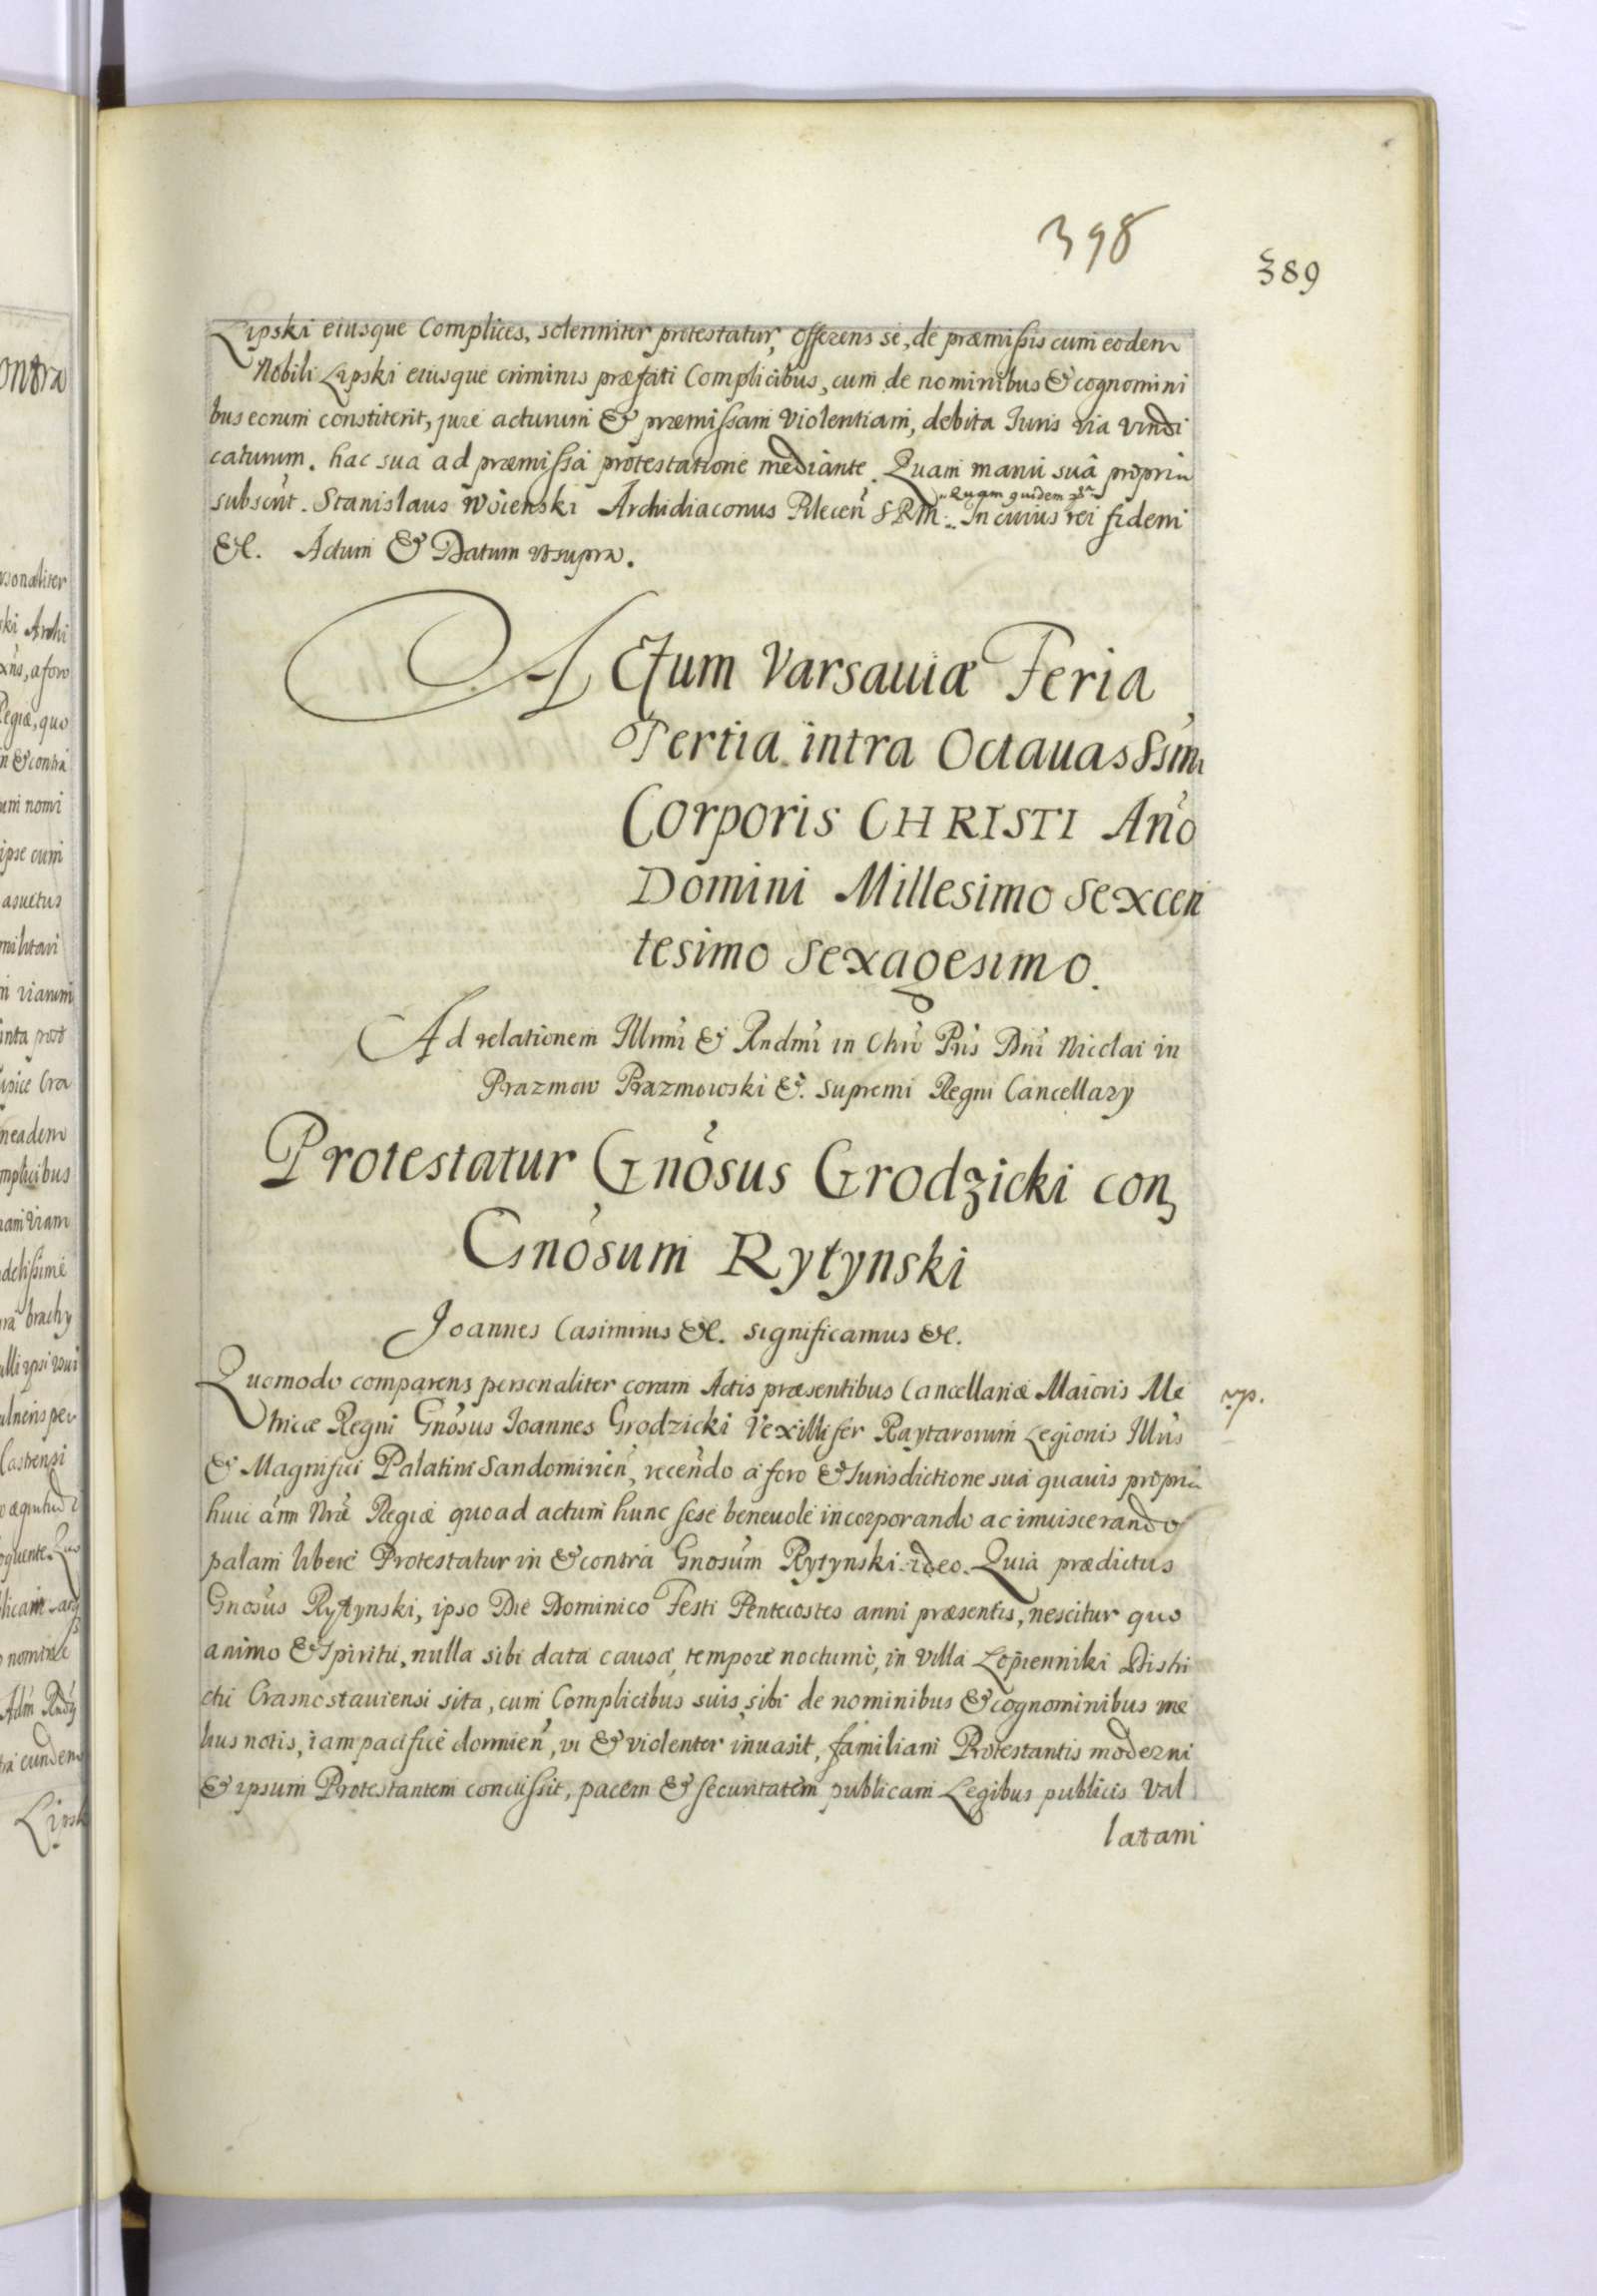 398
389
Lipski eiusque Complices, solenniter protestatur, offerens se, de præmissis cum eodem
Nobili Lipski eiusque criminis præfati Complicibus, cum de nominibus & cognomini
bus eorum constiterit, jure acturum & præmissam violentiam, debita Iuris via vindi
caturum. hac sua ad præmissa protestatione mediante. Quam manu suâ propria
subscrit. Stanislaus Woienski Archidiaconus Plecen SRM. In cuius rei fidem
Quam quidem
&c. Actum & Datum vt supra.
Actum Varsauiæ Feria
Tertia intra Octauas SSmi
Corporis CHRISTI Año
Domini Millesimo Sexcen
tesimo Sexagesimo.
Ad relationem Illmi & Rndmi in Chro Pris Dni Nicolai in
Prazmow Prazmowski &. Supremi Regni Cancellary
Protestatur Gnosus Grodzicki con
Gnosum Rytynski
Joannes Casimirus &c. significamus &c.
Quomodo comparens personaliter coram Actis præsentibus Cancellariæ Maioris Me
tricæ Regni Gnosus Ioannes Grodzicki Vexillifer Raytarorum Legionis Illris
& Magnifici Palatini Sandomirien, recendo à foro & Iurisdictione suâ quauis propria
huic Nræ Regiæ quo ad actum hunc sese beneuole incorporando ac inuiscerando
palam libere Protestatur in & contra Gnosum Rytynski ideo. Quia prædictus
Gnosus Rytynski, ipso Die Dominico Festi Pentecostes anni præsentis, nescitur quo
animo & Spiritu, nulla sibi data causa, tempore nocturno, in villa Lopienniki Distri
ctu Crasnostauiensi sita, cum Complicibus suis, sibi de nominibus & cognominibus me
lius notis, iam pacifice dormien, vi & violenter inuasit, familiam Protestantis moderni
& ipsum Protestantem concussit, pacem & securitatem publicam Legibus publicis val
latam